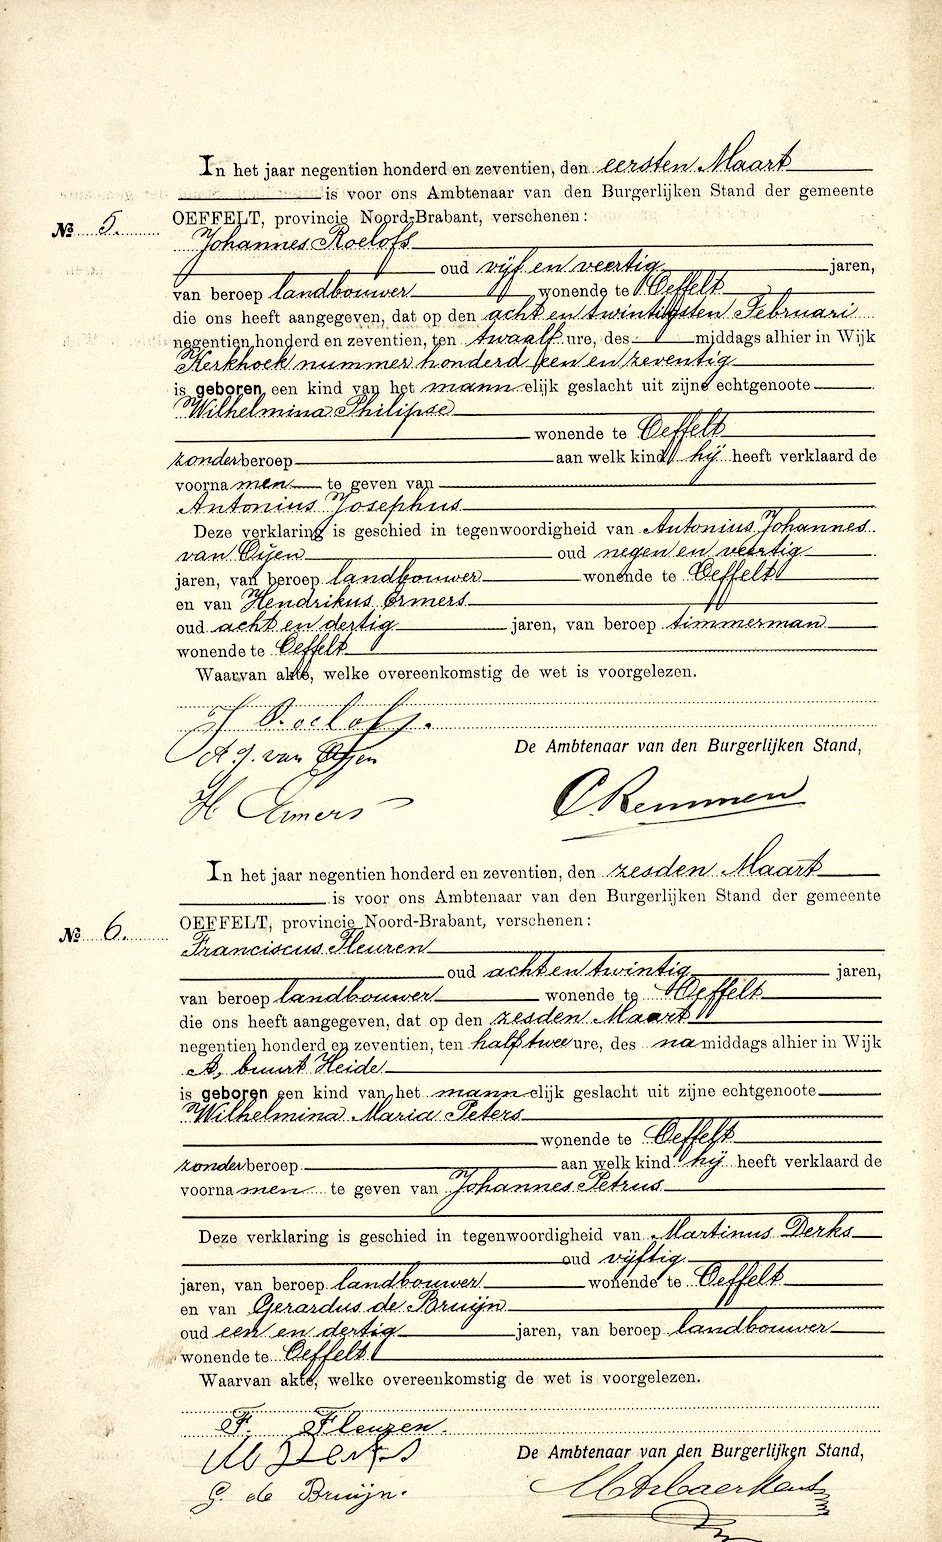 In het jaar negentien honderd en zeventien, den eersten Maart
is voor ons Ambtenaar van den Burgerlijken Stand der gemeente
№ 5.
OEFFELT, provincie Noord-Brabant, verschenen:
Johannes Roelofs
oud vijf en veertig jaren,
van beroep landbouwer wonende te Oeffelt
die ons heeft aangegeven, dat op den acht en twintigsten Februari
negentien honderd en zeventien, ten twaalf ure, des middags alhier in Wijk
Kerkhoek nummer honderd een en zeventig
is geboren een kind van het mannelijk geslacht uit zijne echtgenoote
Wilhelmina Philipse
wonende te Oeffelt
zonder beroep aan welk kind hij heeft verklaard de
voornamen te geven van
Antonius Josephus
Deze verklaring is geschied in tegenwoordigheid van Antonius Johannes
van Oijen oud negen en veertig
jaren, van beroep landbouwer wonende te Oeffelt
en van Hendrikus Ermers
oud acht en dertig jaren, van beroep timmerman
wonende te Oeffelt
Waarvan akte, welke overeenkomstig de wet is voorgelezen.
J Roelofs.
A. J. van Oijen
De Ambtenaar van den Burgerlijken Stand,
H Ermers
C. Remmen
In het jaar negentien honderd en zeventien, den zesden Maart
is voor ons Ambtenaar van den Burgerlijken Stand der gemeente
№ 6.
OEFFELT, provincie Noord-Brabant, verschenen:
Franciscus Fleuren
oud acht en twintig jaren,
van beroep landbouwer wonende te Oeffelt
die ons heeft aangegeven, dat op den zesden Maart
negentien honderd en zeventien, ten half twee ure, des namiddags alhier in Wijk
A, buurt Heide
is geboren een kind van het mannelijk geslacht uit zijne echtgenoote
Wilhelmina Maria Peters
wonende te Oeffelt
zonder beroep aan welk kind hij heeft verklaard de
voornamen te geven van Johannes Petrus
Deze verklaring is geschied in tegenwoordigheid van Martinus Derks
oud vijftig
jaren, van beroep landbouwer wonende te Oeffelt
en van Gerardus de Bruijn
oud een en dertig jaren, van beroep landbouwer
wonende te Oeffelt
Waarvan akte, welke overeenkomstig de wet is voorgelezen.
F. Fleuren.
M Derks
De Ambtenaar van den Burgerlijken Stand,
G. de Bruijn.